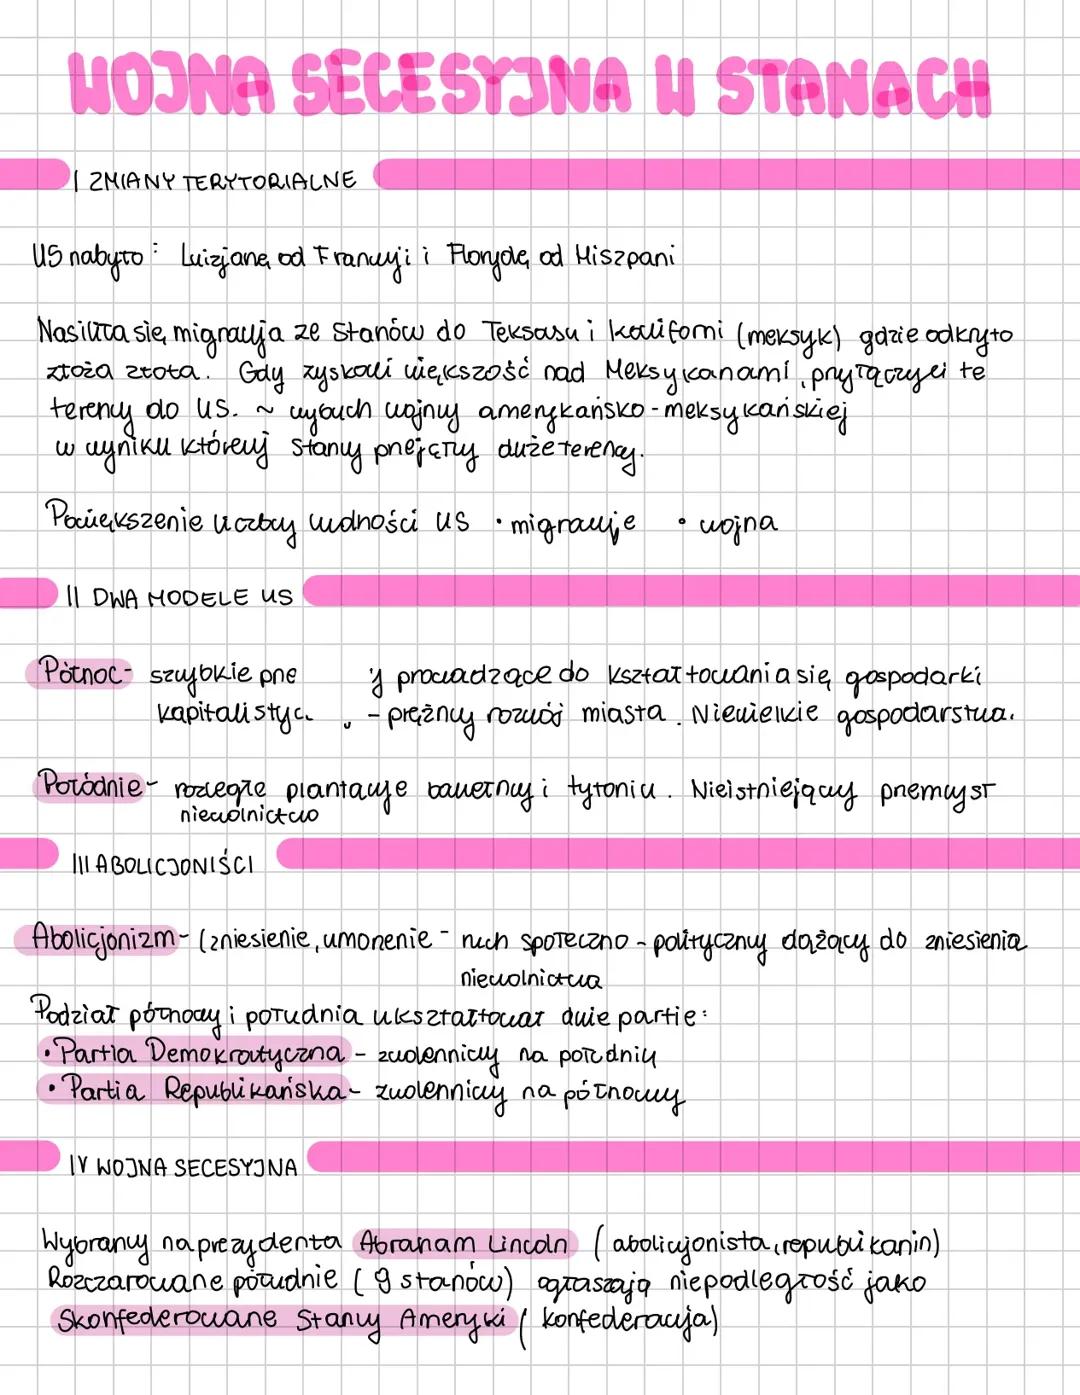 WOJNA SECESYJNA W STANACH
I ZMIANY TERYTORIALNE
US nabyto: Luizjanę od Francji i Florydę od Hiszpani
Nasiliła się migracja ze Stanów do Teksasu i kaliforni (meksyk) gdzie odkryto
złoża złota. Gdy zyskali większość nad Meksykanami, przyłączyli te
tereny do US. ~ wybuch wojny amerykańsko-meksykańskiej
w wyniku której stany przejęły duże tereny.
Powiększenie liczby ludności US • migracje • wojna
II DWA MODELE US
Północ- szybkie prze y prowadzące do kształtowania się gospodarki
kapitalistyc. - prężny rozwój miasta. Niewielkie gospodarstwa.
Połódnie- rozległe plantacje bawełny i tytoniu. Nieistniejący przemysł
niewolnictwo
III ABOLICJONIŚCI
Abolicjonizm- (zniesienie, umorzenie - ruch społeczno-polityczny dążący do zniesienia
niewolnictwa
Podział północy i południa ukształtował dwie partie:
• Partia Demokratyczna - zwolennicy na południu
• Partia Republikańska - zwolennicy na północy
IV WOJNA SECESYJNA
Wybrany na prezydenta Abraham Lincoln (abolicjonista, republikanin)
Rozczarowane południe (9 stanów) ogłaszają niepodległość jako
Skonfederowane Stany Ameryki (konfederacja)